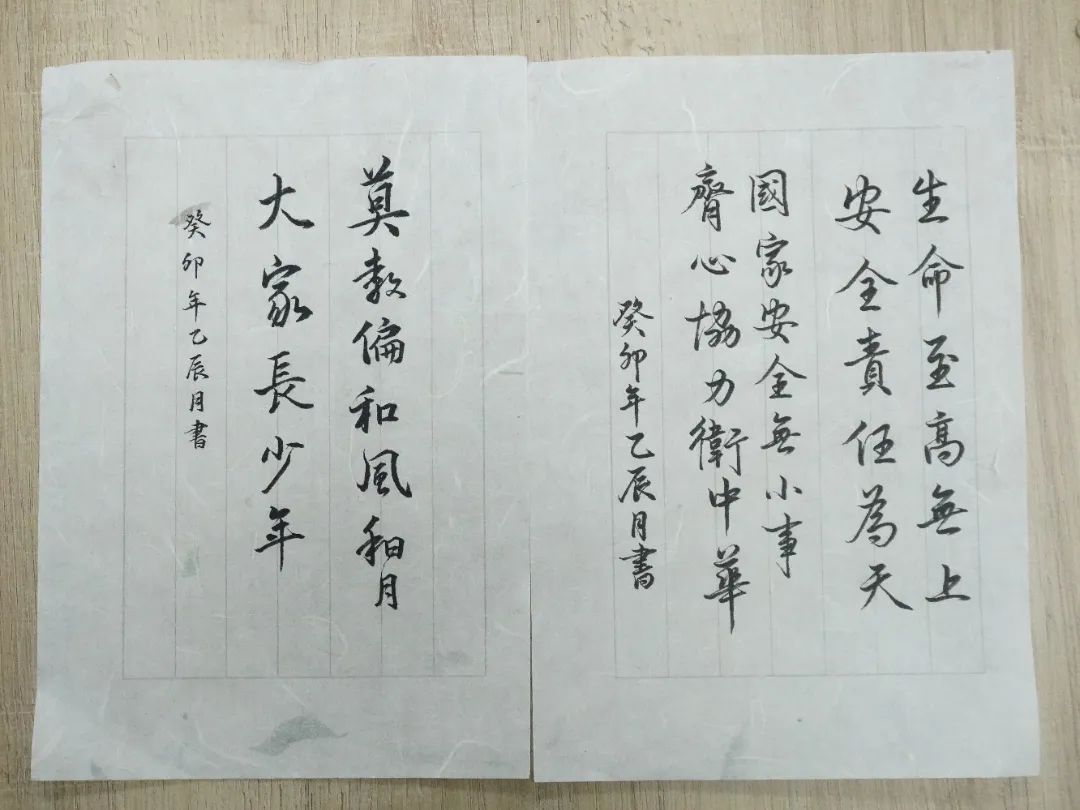 生命至高無上
安全責任為天
國家安全無小事
齊心協力衛中華
癸卯年乙辰月書
莫教偏和風和月
大家長少年
癸卯年乙辰月書